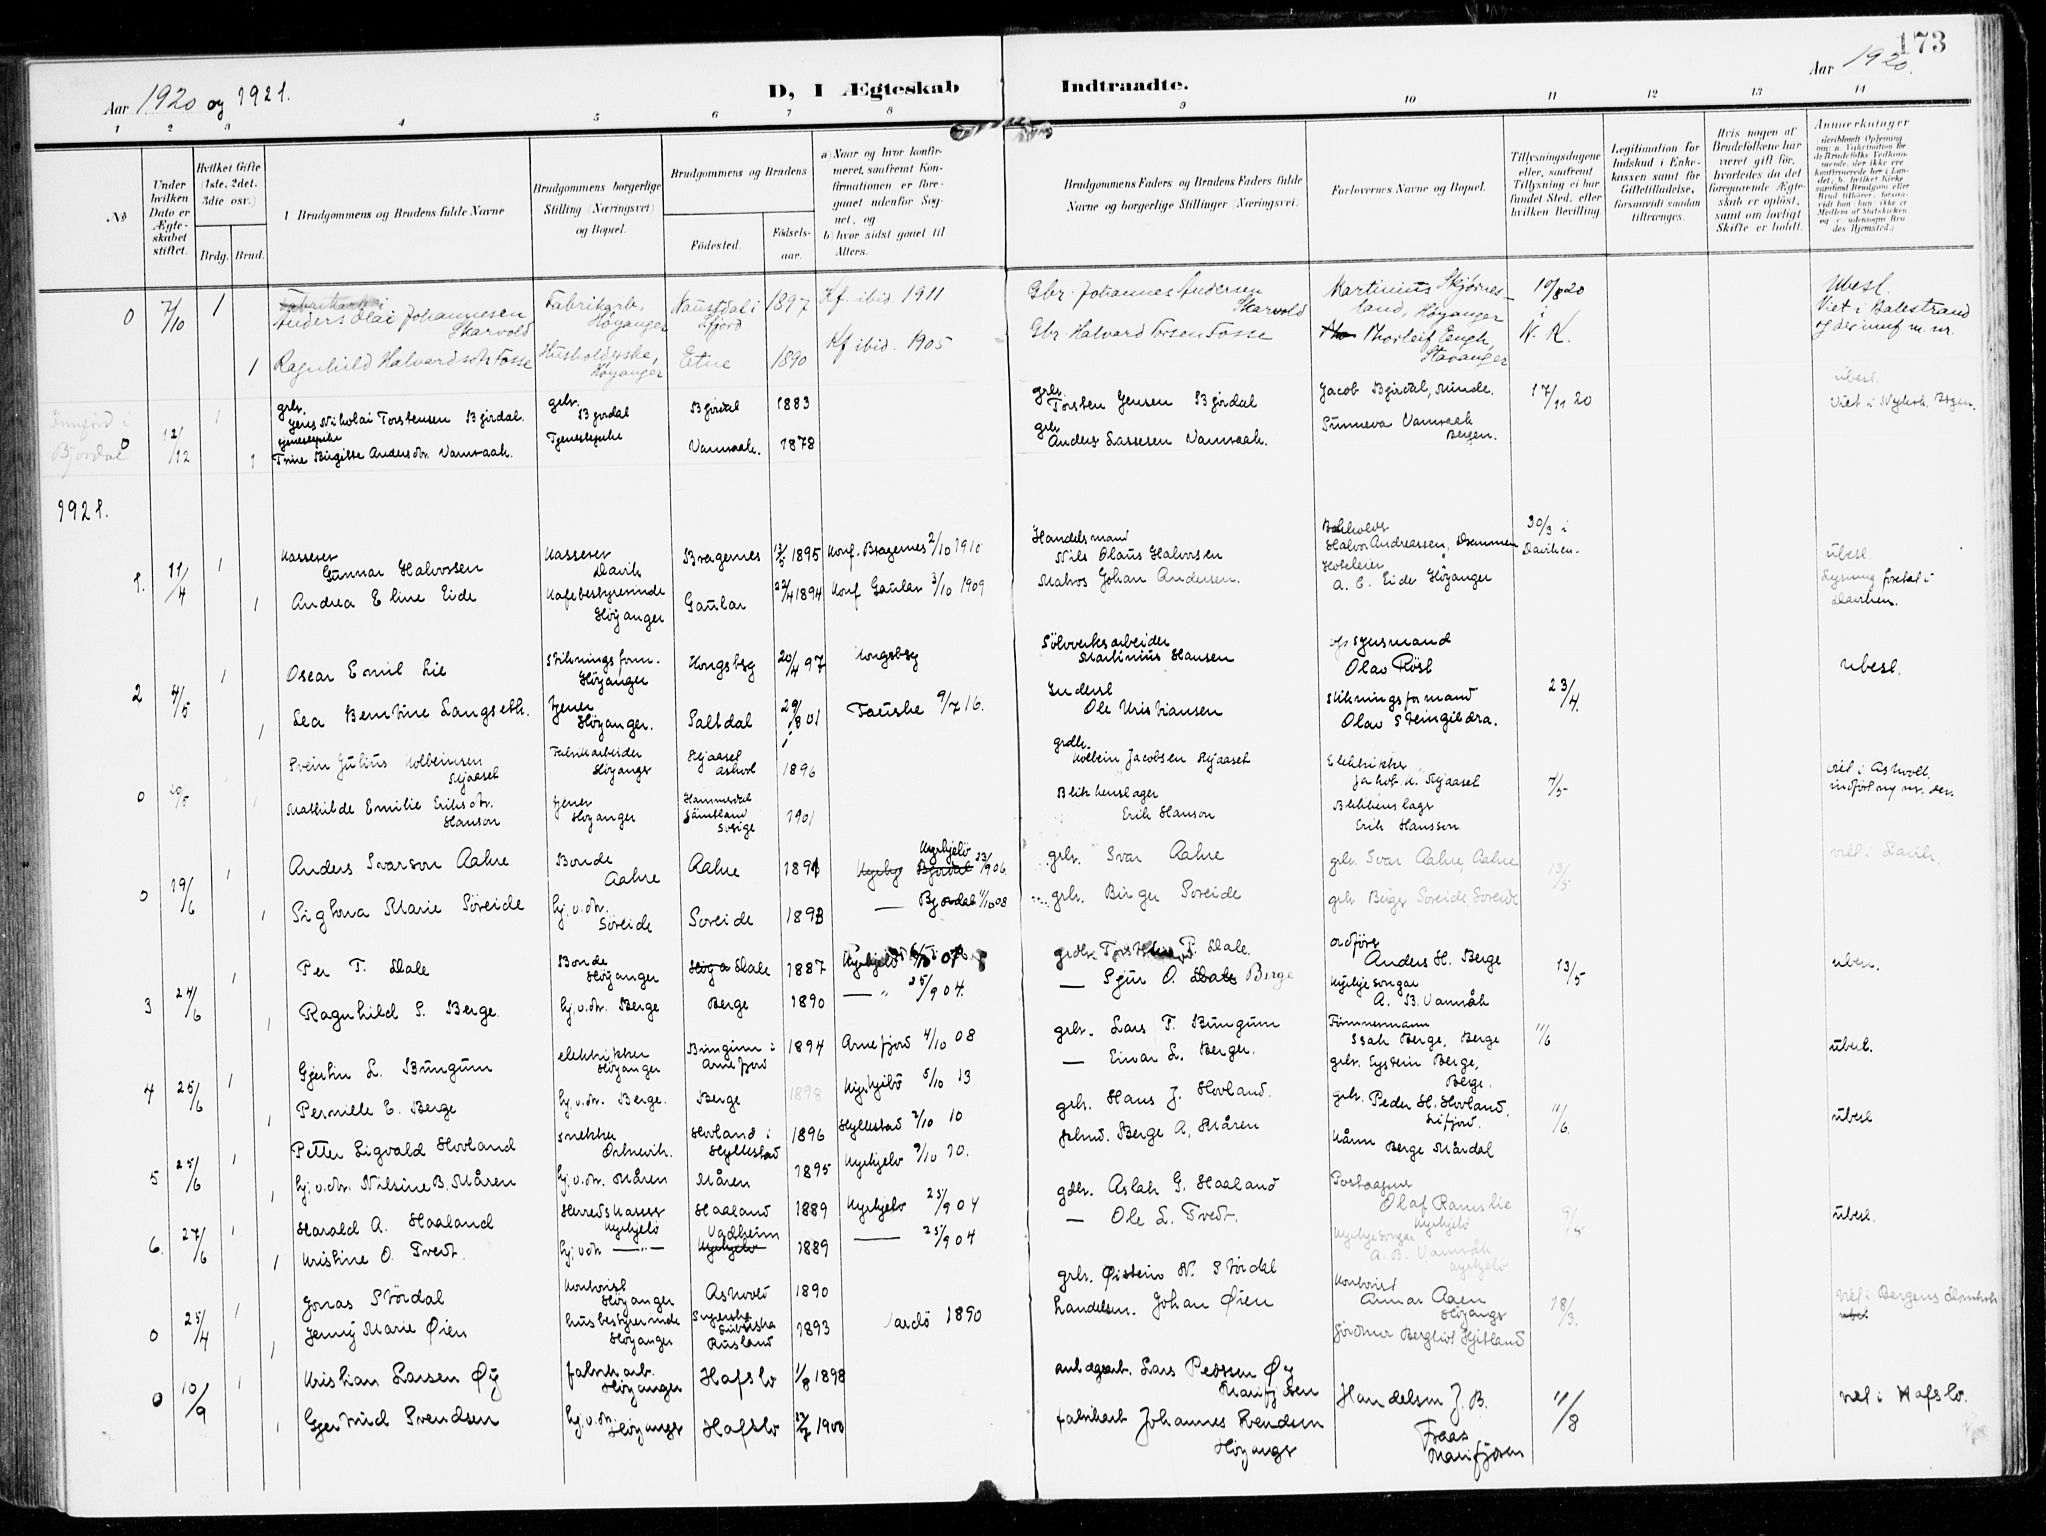 173
Aar 1920 og 1921.
D, I Ægteskab Indtraadte.
Aar 1920.
1 2 3 4 5 6 7 8 9 10 11 12 13 14
No
Under hvilken Dato er Ægteskabet stiftet.
Hvilket Gifte (1ste, 2det, 3dte osv.)
Brdg. Brud.
Brudgommens og Brudens fulde Navne
Brudgommens borgerlige Stilling (Næringsvei) og Bopæl.
Brudgommens og Brudens
Fødested.
Fødselsaar.
a) Naar og hvor konfirmeret, saafremt Konfirmationen er foregaaet udenfor Sognet, og
b) hvor sidst gaaet til Alters.
Brudgommens Faders og Brudens Faders fulde Navne og borgerlige Stillinger (Næringsvei).
Forlovernes Navne og Bopæl.
Tillysningsdagene eller, saafremt Tillysning ei har fundet Sted, efter hvilken Bevilling
Legitimation for Indskud i Enkekassen samt for Giftetilladelse, forsaavidt saadan tiltrænges.
Hvis nogen af Brudefolkene har været gift før, hvorledes da det foregaaende Ægteskab er opløst, samt om lovligt Skifte er holdt.
Anmerkninger
0 7/10 1 Anders Olai Johannesen Skarvold Fabrikarb, Høyanger Naustdal i Sfjord 1897 Kf. ibid. 1911 Gbr. Johannes Andersen Skarvold Martinius Skjørnesland, Høyanger 10/8 20 i Ubesl. Viet i Balestrand
1 Ragnhild Halvardsdtr Fosse Husholderske, Høyanger Etne 1890 Kf ibid. 1905 Gbr. Halvard Torsen Fosse Thorleif Eengh, Stavanger K. K.
Innførd i Bjordal
0 12/12 1 grbr. Jens Nikolai Torstensen Bjordal. gbr. Bjordal Bjordal 1883 grbr. Torsten Jensen Bjordal Jacob Bjordal, Minde. 17/11 20 ubesl.
1 Trine Birgitte Andersdtr. Vamraak. Tjenestepike Vamraak. 1878 gbr Anders Lassesen Vamraak. Sunneva Vamraak Bergen.
1921.
1. 11/4 1 Kasserer Gunnar Halvorsen Kasserer Davik Bragernes 13/5 1895 Konf. Bragernes 2/10 1910 Handelsmand Nils Olaus Halvorsen Halvor Andreassen, Drammen 30/3 i Daviken. ubesl.
1 Andrea Eline Eide Kafebestyrerinde Høyanger Gaular 22/4 1894 Konf Gaular 3/10 1909 Matros Johan Andersen. Hoteleier A. E. Eide Høyanger Lysning foretat i Daviken.
2 4/5 1 Oscar Emil Lie Stikningsform. Høyanger Kongsbg 20/4 97 Kongsbg Sölvverksarbeider Martinius Hansen Olav Röst 23/4. ubesl.
1 Lea Bentine Langseth. tjener Høyanger. Saltdal 29/8 01 Fauske 9/7 16. Ole Kristiansen Stikningsformand Olav Steingildra.
0 20/5 1 Svein Julius Kolbeinsen Mjaaset Fabrikarbeider Høyanger Mjaaset Askvol 1896 grdbr. Kolbein Jacobsen Mjaaset Elektriker Jakob K. Mjaaset 7/5 viet i Askvoll.
1 Mathilde Emilie Eriksdtr. Hanson tjener Høyanger Hammerdal Jämtland Sverige 1901 Blikkenslager Erik Hanson Blikkenslagr Erik Hansson
0 19/6 1 Anders Ivarson Aakre Bonde Aakre Aakre 1891 Kyrkjebö 23/9 06. grbr. Ivar Aakre grbr. Ivar Aakre, Aakre 13/5
1 Sigtona Marie Söreide hj. v. dtr. Söreide Soreide 1893 Bjordal 11/10 08 grbr. Birger Soreide grbr Birger Soreide, Soreide
3 24/6 1 Per T. Dale Bonde Høyanger Dale 1887 Kyrkjebö 07 grdbr Torstein P. Dale. ordförar Anders H. Berge 13/5 uben.
1 Ragnhild S. Berge. hj. v. dtr. Berge Berge 1890 — " 25/9 04. — Sjur O. Berge Kyrkjesongar A. B. Vamråk
4 25/6 1 Gjertin L. Bungum elektriker Høyanger Bungum i Arnefjord 1894 Arnefjord 4/10 08 grbr. Lars T. Bungum Tömmermann Isak Berge, Berge 11/6 ubesl.
1 Pernille E. Berge hj. v. dtr. Berge. Berge 1898 Kyrkjebö 5/10 13 — Einar L. Berge. grbr. Eystein Berge, Berge.
5 25/6 1 Petter Sigvald Hovland snekker Ortnevik. Hovland i Hyllestad 1896 Hyllestad 2/10 10 grbr. Hans J. Hovland. grbr. Peder H. Hovland, Lifjord. 11/6. ubesl
1 hj. v. dtr. Nilsine B. Måren hj. v. dtr. Måren Måren 1895 Kyrkjebö 9/10 10. Berge A. Måren Berge Mårdal
6. 27/6 1 Harald A. Haaland Herredskasser Kyrkjebö Haaland 1889 Kyrkjebö 25/9 04 gdbr. Aslak G. Haaland Olaf Ramslie Kyrkjebö 9/5 ubesl.
1 Kristine O. Tvedt. hj. v dtr —"— Vadheim 1889 — 25/9 04 — Ole L. Tvedt. Kyrkjesongar A. B. Vamråk Kyrkjebö
0 25/4 1 Jonas Stördal Kontorist Höyanger Askvold 1890 grbr. Øistein N. Stördal Kontorist Annar Aaen Höyangr 18/3. viet i Bergens Domkirk
1 Jenny Marie Øien husbestyrerinde Høyanger Rusland 1893 Vardö 1890 handelsm. Johan Øien Jordmor Bergliot Hjetland
0 10/9 1 Kristian Larsen Øy fabrikarb. Høyanger Hafslo 1/8 1898 anlægsarb. Lars Pedersen Øy Marifjøren Handelsm J. B. Fraas Marifjøren 11/8 viet i Hafslo.
1 Gjertrud Svendsen hj. v. dtr. Høyangr Hafslo 1900 fabrikarb Johannes Svendsen Höyangr